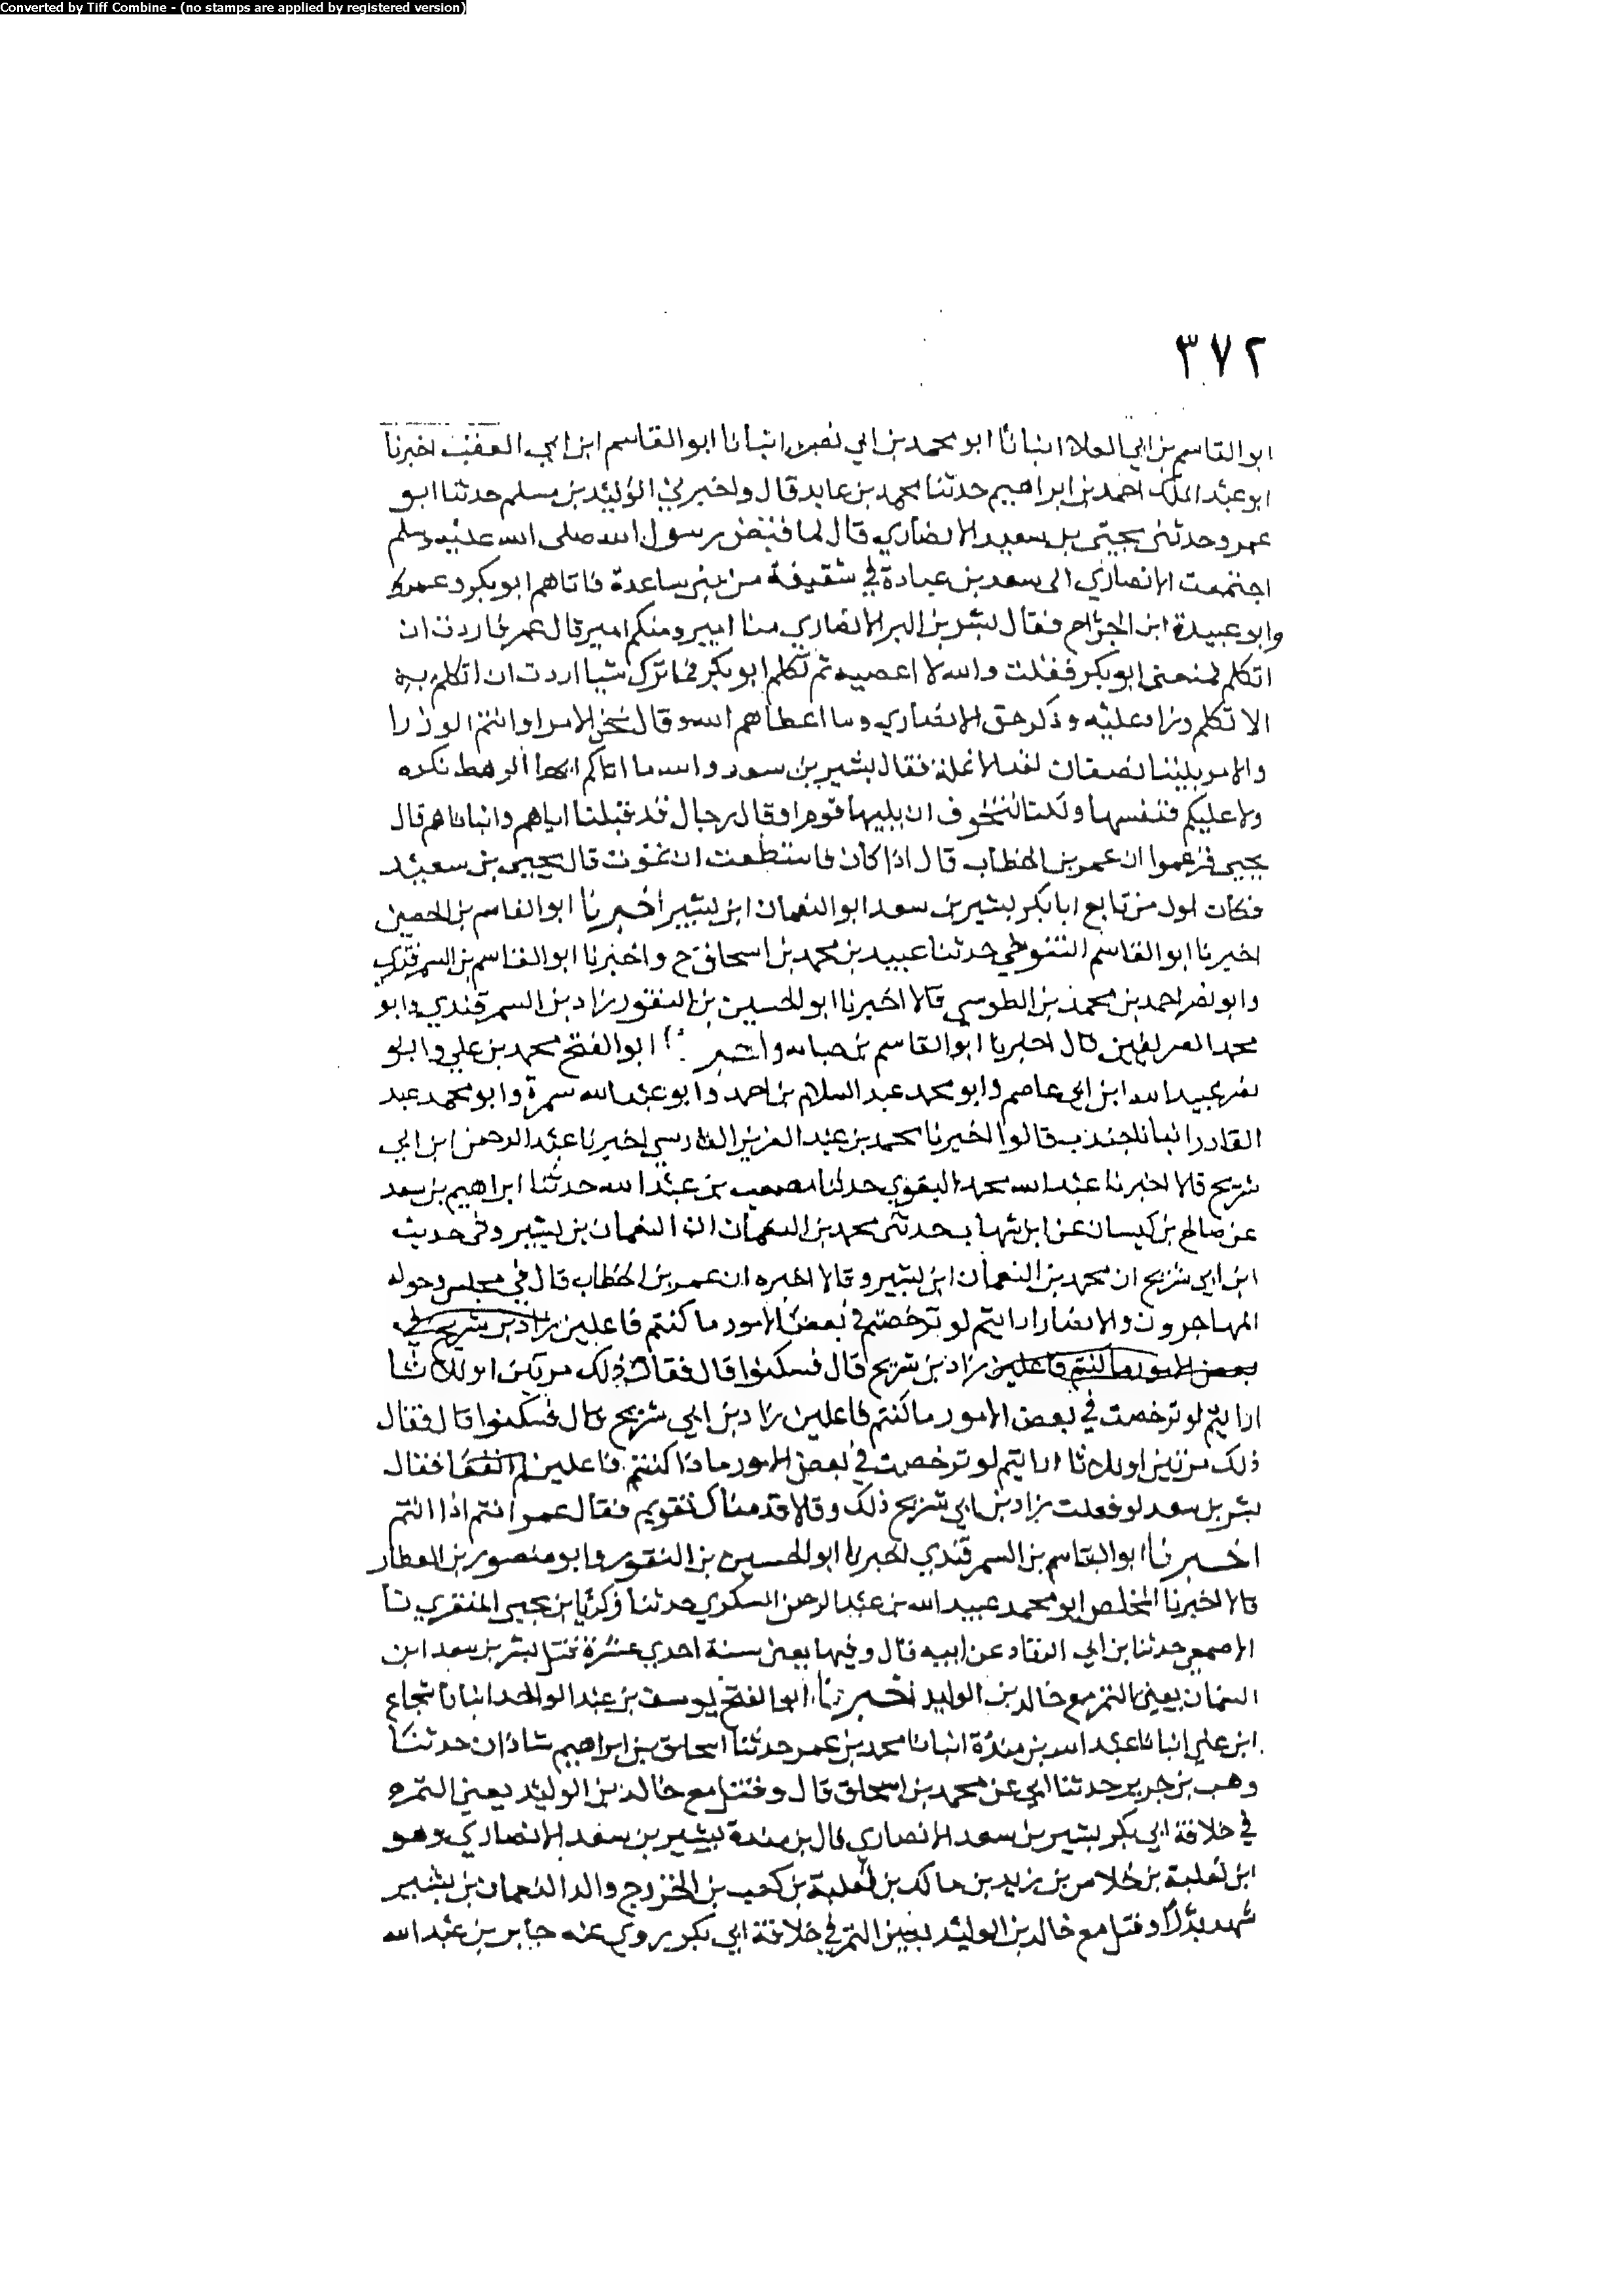 Converted by Tiff Combine - (no stamps are applied by registered version)
٣٧٢
ابو القاسم بن ابي العلاء انبانا ابو محمد بن ابي نصر انبانا ابو القاسم ابن ابي العقب اخبرنا
ابو عبد الملك احمد بن ابراهيم حدثنا محمد بن عايد قال واخبرني الوليد بن مسلم حدثنا ابو
عمرو حدثني يحيى بن سعيد الانصاري قال لما قبض رسول الله صلى الله عليه وسلم
اجتمعت الانصاري الى سعد بن عبادة في شقيفة من بني ساعدة فاتاهم ابو بكر وعمر
وابو عبيدة ابن الجراح فقال بشر بن البر الانصاري منا امير ومنكم امير قال عمر فاردت ان
اتكلم فمنعني ابو بكر فقلت والله لا اعصيه ثم تكلم ابو بكر فما ترك شيا اردت ان اتكلم به
الا تكلم وزاد عليه وذكر حق الانصاري وما اعطاهم الله وقال نحن الامرا وانتم الوزرا
والامر بيننا نصفان فقال بشير بن سعد والله ما اياكم ايها الرهط نكره
ولا عليكم ننفسها ولكنا نتخوف ان يليها قوم او قال رجال قد قتلنا اباهم وابناهم قال
يحيى فزعموا ان عمر بن الخطاب قال اذا كان فاستطعت ان تموت قال يحيى بن سعيد
فكان اول من تابع ابا بكر بشير بن سعد ابو النعمان ابن بشير اخبرنا ابو القاسم بن الحصين
اخبرنا ابو القاسم التنوخي حدثنا عبيد بن محمد بن اسحاق ح واخبرنا ابو القاسم بن السمرقندي
وابو نصر احمد بن محمد بن الطوسي قالا اخبرنا ابو الحسين بن النقور زاد بن السمرقندي وابو
محمد الصريفيني قال اخبرنا ابو القاسم بن حبابه ابو الفتح محمد بن علي وابو
نصر عبيد الله ابن ابي عاصم وابو محمد عبد السلام بن احمد وابو عبد الله سمرة وابو محمد عبد
القادر قالوا اخبرنا محمد بن عبد العزيز الفارسي اخبرنا عبد الرحمن ابن ابي
شريح قالا اخبرنا عبد الله محمد البغوي حدثنا مصعب بن عبد الله حدثنا ابراهيم بن سعد
عن صالح بن كيسان عن ابن شهاب حدثني محمد بن النعمان ان النعمان بن بشير وفي حديث
ابن ابي شريح ان محمد بن النعمان ابن بشير وقالا اخبره ان عمر بن الخطاب قال في مجلس وحوله
المهاجرون والانصار ارايتم لو ترخصتم في بعض الامور ما كنتم فاعلين زاد بن شريح في
بعض الامور ما كنتم فاعلين زاد بن شريح قال فسكتوا قال فقال ذلك مرتين او ثلاثا
ارايتم لو ترخصت في بعض الامور ما كنتم فاعلين زاد بن ابي شريح قال فسكتوا قال فقال
ذلك مرتين او ثلاثا ارايتم لو ترخصت في بعض الامور ماذا كنتم فاعلين فقال
بشر بن سعد لو فعلت زاد بن ابي شريح ذلك وقالا قدمناك تقويم فقال عمر انتم اذا انتم
اخبرنا ابو القاسم بن السمرقندي اخبرنا ابو الحسين بن النقور وابو منصور بن العطار
قالا اخبرنا المخلص ابو محمد عبيد الله بن عبد الرحمن السكري حدثنا زكريا بن يحيى المنقري نا
الاصمعي حدثنا بن ابي عن ابيه قال وفيها يعني سنة احدي عشرة قتل بشر بن سعد ابن
النعمان بعين التمر مع خالد بن الوليد اخبرنا ابو الفتح يوسف بن عبد الواحد انبانا شجاع
ابن علي انبانا عبد الله بن مندة انبانا محمد بن عمر حدثنا اسحاق بن ابراهيم شاذان حدثنا
وهب بن جرير حدثنا ابي عن محمد بن اسحاق قال وقتل مع خالد بن الوليد يعني التمر
في خلافة ابي بكر بشير بن سعد الانصاري قال بن مندة بشير بن سعد الانصاري وهو
ابن ثعلبة بن خلاص بن زيد بن مالك بن ثعلبة بن كعب بن الخزرج والد النعمان بن بشير
شهد بدرًا وقتل مع خالد بن الوليد بعين التمر في خلافة ابي بكر يروي عنه جابر بن عبد الله